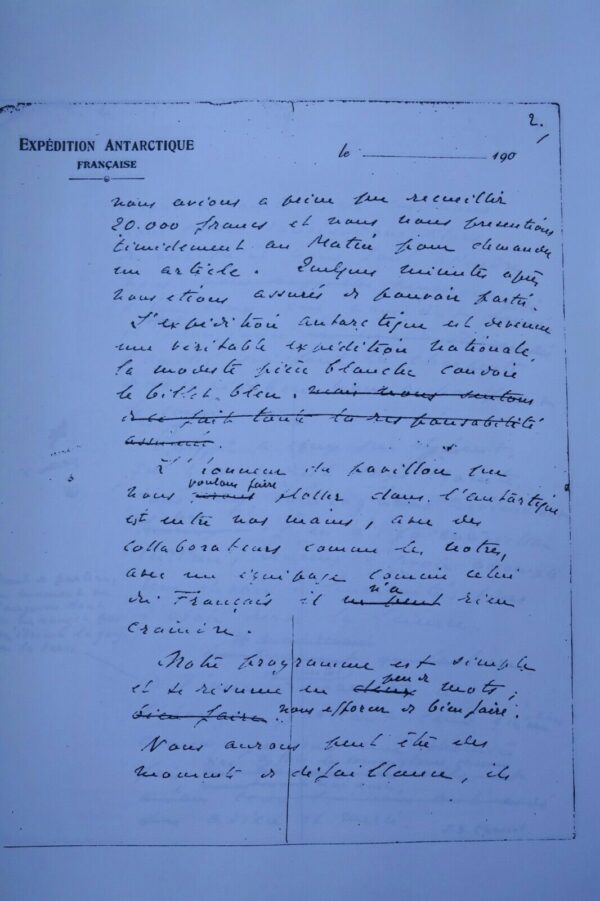 2.
EXPÉDITION ANTARCTIQUE
FRANÇAISE
le 190
nous avions a peine pu recueillir
20.000 francs et nous nous presentions
timidement au Matin pour demander
un article. Quelques minutes après
nous etions assurés de pouvoir partir.
L'expédition antarctique est devenue
une véritable expédition nationale,
la modeste pièce blanche coudoie
le billet bleu. mais nous sentons
de ce fait toute la responsabilité
assumée.
L'honneur du pavillon que
voulons faire
nous flotter dans l'antarctique
est entre nos mains, avec des
collaborateurs comme les notres,
avec un équipage comme celui
n'a
du Français il ne peut rien
craindre.
Notre programme est simple
peu de
et se résume en deux mots;
bien faire. nous efforcer de bien faire.
Nous aurons peut être des
moments de défaillance, ils